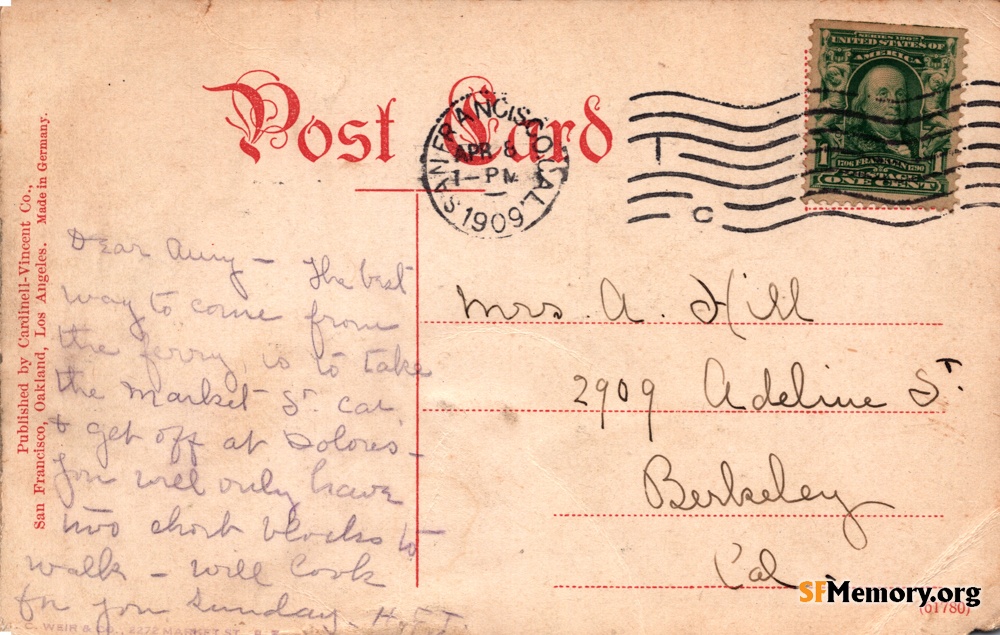 Post Card
SAN FRANCISCO, CAL.
APR 8
1-PM
1909
T
C
SERIES 1902
UNITED STATES OF
AMERICA
1706 FRANKLIN 1790
POSTAGE
1 1
ONE CENT
Published by Cardinell-Vincent Co.,
San Francisco, Oakland, Los Angeles. Made in Germany.
Dear Amy – The best
way to come from
the ferry is to take
the Market St. car
& get off at Dolores –
You will only have
two short blocks to
walk – will look
for you Sunday.
Mrs A. Hill
2909 Adeline St.
Berkeley
Cal
C. WEIR & CO., 2272 MARKET ST.
(61780)
SFMemory.org